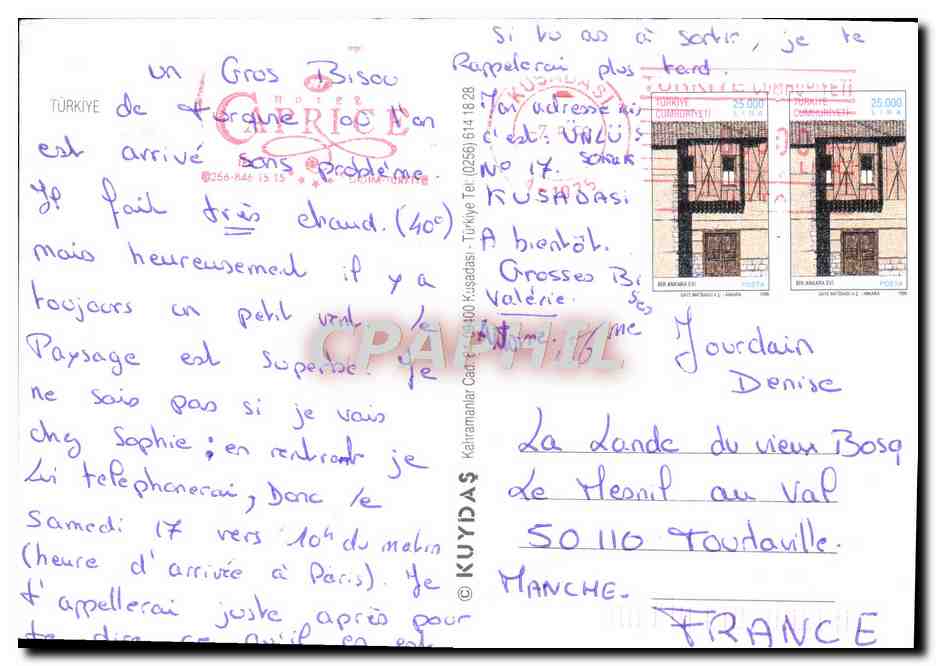 un Gros Bisou
de Turquie où l'on
est arrivé sans problème.
Il fait très chaud. (40°)
mais heureusement il y a
toujours un petit vent. le
Paysage est superbe. Je
ne sais pas si je vais
chez Sophie ; en rentrant je
Lui telephonerai, Donc le
Samedi 17 vers 10h du matin
(heure d'arrivée à Paris). Je
t'appellerai juste après pour
te dire ce qu'il en est
si tu as à sortir, je te
Rappelerai plus tard.
Mon adresse ici
c'est. ÜNLÜ
SOKAK
No 17.
KUSADASI
A bientôt.
Grosses Bises
Valérie.
TÜRKİYE
HOTEL
CAPRICE
KUSADASI
© KUYDAŞ
Kahramanlar Cad. 09400 Kuşadası - Türkiye Tel: (0256) 614 18 28
TÜRKİYE CUMHURİYETİ
25.000 LİRA
BİR ANKARA EVİ
POSTA
TÜRKİYE CUMHURİYETİ
25.000 LİRA
BİR ANKARA EVİ
POSTA
Jourdain
Denise
La Lande du vieux Bosq
Le Mesnil au Val
50 110 Tourlaville.
MANCHE.
FRANCE
CPAPHIL